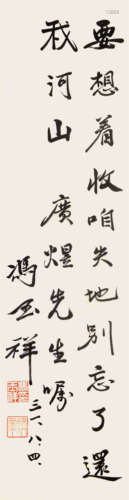 要想着收咱失地别忘了還
我河山 廣煜先生嘱
馮玉祥
三一、八、四、